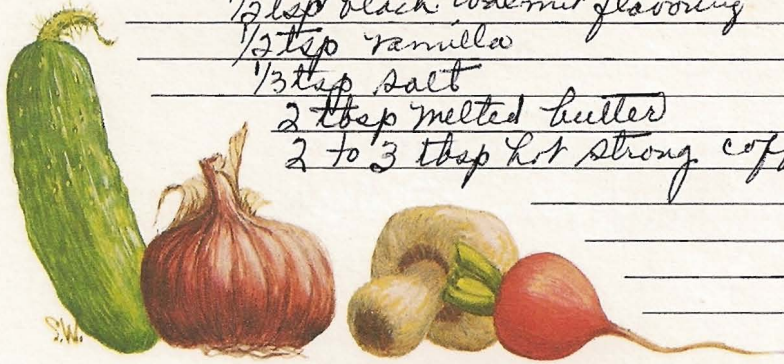 1/2 tsp black walnut flavoring
1/2 tsp vanilla
1/3 tsp salt
2 tbsp melted butter
2 to 3 tbsp hot strong cof
S.W.